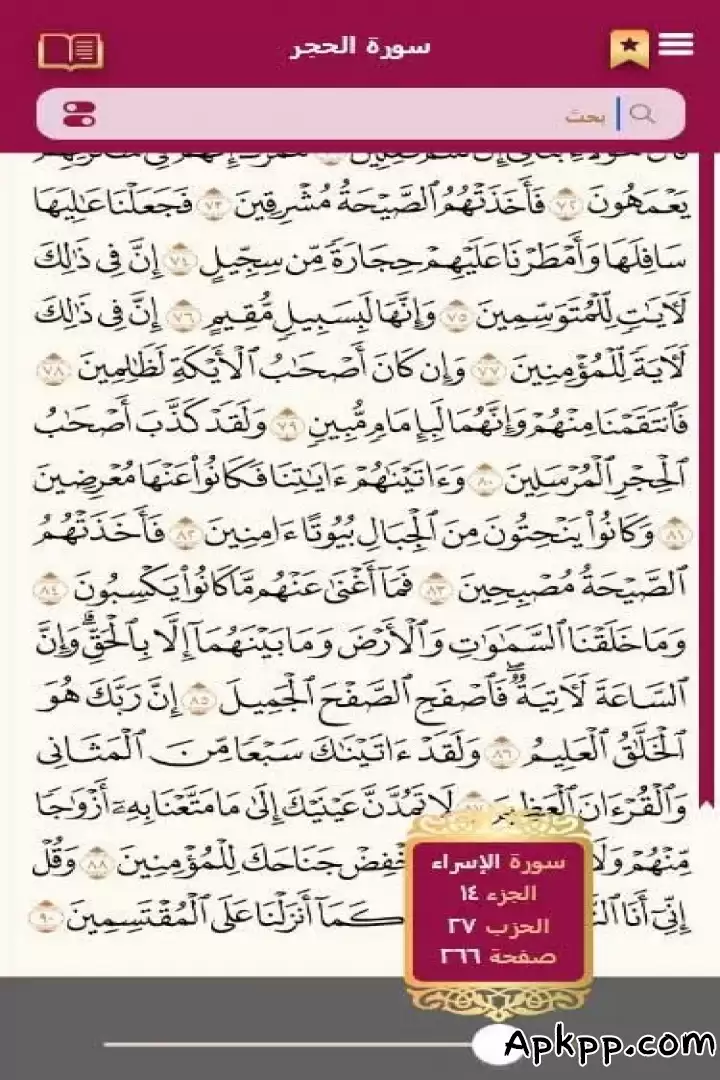 سورة الحجر
بحث
يَعْمَهُونَ ٧٢ فَأَخَذَتْهُمُ ٱلصَّيْحَةُ مُشْرِقِينَ ٧٣ فَجَعَلْنَا عَٰلِيَهَا
سَافِلَهَا وَأَمْطَرْنَا عَلَيْهِمْ حِجَارَةً مِّن سِجِّيلٍ ٧٤ إِنَّ فِى ذَٰلِكَ
لَأٓيَٰتٍ لِّلْمُتَوَسِّمِينَ ٧٥ وَإِنَّهَا لَبِسَبِيلٍ مُّقِيمٍ ٧٦ إِنَّ فِى ذَٰلِكَ
لَأٓيَةً لِّلْمُؤْمِنِينَ ٧٧ وَإِن كَانَ أَصْحَٰبُ ٱلْأَيْكَةِ لَظَٰلِمِينَ ٧٨
فَٱنتَقَمْنَا مِنْهُمْ وَإِنَّهُمَا لَبِإِمَامٍ مُّبِينٍ ٧٩ وَلَقَدْ كَذَّبَ أَصْحَٰبُ
ٱلْحِجْرِ ٱلْمُرْسَلِينَ ٨٠ وَءَاتَيْنَٰهُمْ ءَايَٰتِنَا فَكَانُوا۟ عَنْهَا مُعْرِضِينَ
٨١ وَكَانُوا۟ يَنْحِتُونَ مِنَ ٱلْجِبَالِ بُيُوتًا ءَامِنِينَ ٨٢ فَأَخَذَتْهُمُ
ٱلصَّيْحَةُ مُصْبِحِينَ ٨٣ فَمَآ أَغْنَىٰ عَنْهُم مَّا كَانُوا۟ يَكْسِبُونَ ٨٤
وَمَا خَلَقْنَا ٱلسَّمَٰوَٰتِ وَٱلْأَرْضَ وَمَا بَيْنَهُمَآ إِلَّا بِٱلْحَقِّ ۗ وَإِنَّ
ٱلسَّاعَةَ لَأٓتِيَةٌ ۖ فَٱصْفَحِ ٱلصَّفْحَ ٱلْجَمِيلَ ٨٥ إِنَّ رَبَّكَ هُوَ
ٱلْخَلَّٰقُ ٱلْعَلِيمُ ٨٦ وَلَقَدْ ءَاتَيْنَٰكَ سَبْعًا مِّنَ ٱلْمَثَانِى
وَٱلْقُرْءَانَ ٱلْعَظِيمَ ٨٧ لَا تَمُدَّنَّ عَيْنَيْكَ إِلَىٰ مَا مَتَّعْنَا بِهِۦٓ أَزْوَٰجًا
مِّنْهُمْ وَلَا جَنَاحَكَ لِلْمُؤْمِنِينَ ٨٨ وَقُلْ
إِنِّىٓ أَنَا كَمَآ أَنزَلْنَا عَلَى ٱلْمُقْتَسِمِينَ ٩٠
سورة الإسراء
الجزء ١٤
الحزب ٢٧
صفحة ٢٦٦
Apkpp.com